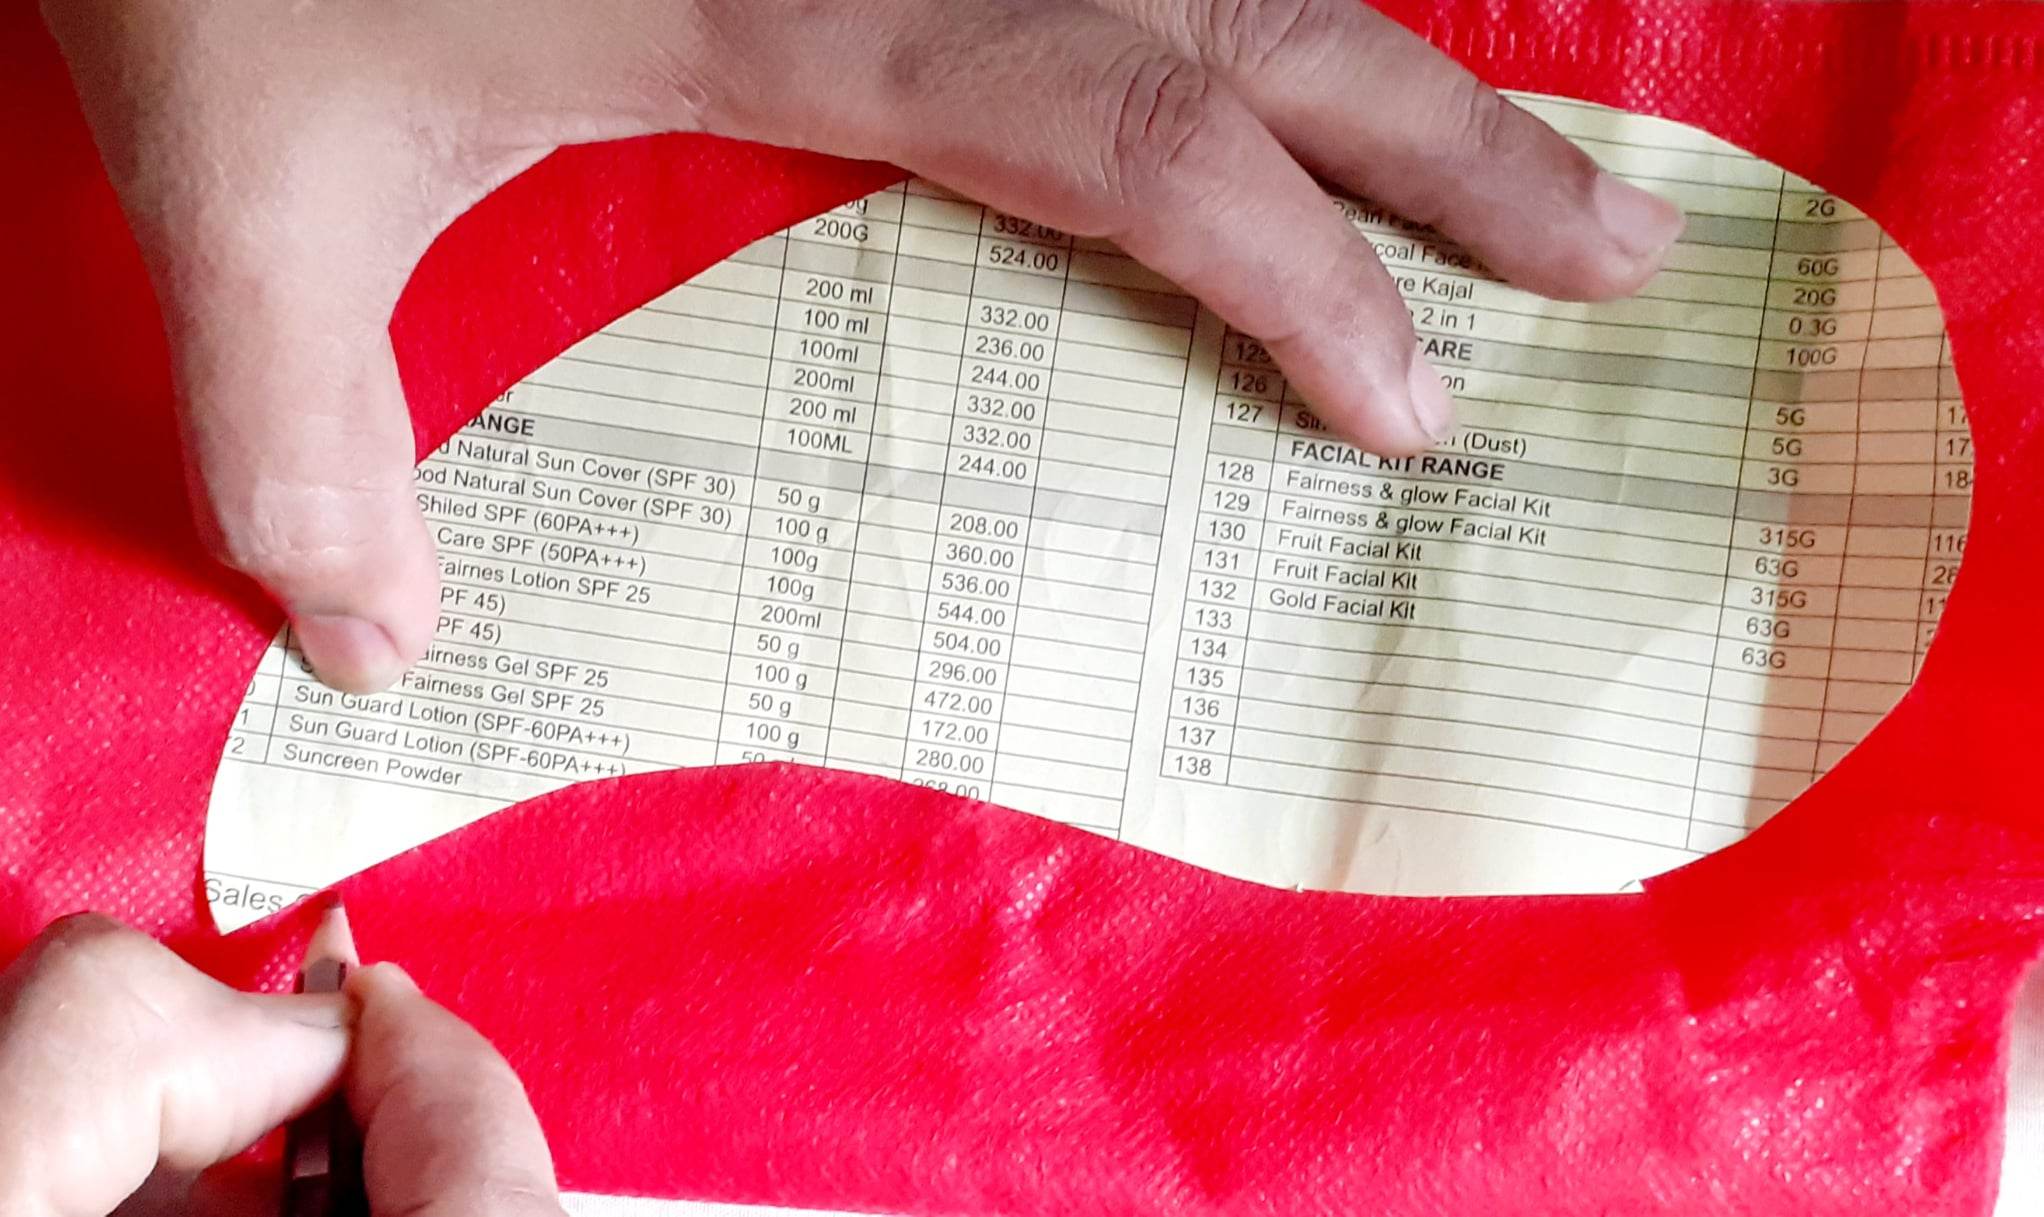 332.00
200G 524.00
200 ml 332.00
100 ml 236.00
100ml 244.00
200ml 332.00
200 ml 332.00
100ML 244.00
ANGE
Natural Sun Cover (SPF 30) 50 g 208.00
ood Natural Sun Cover (SPF 30) 100 g 360.00
Shiled SPF (60PA+++) 100g 536.00
Care SPF (50PA+++) 100g 544.00
airnes Lotion SPF 25 200ml 504.00
PF 45) 50 g 296.00
PF 45) 100 g 472.00
airness Gel SPF 25 50 g 172.00
Fairness Gel SPF 25 100 g 280.00
Sun Guard Lotion (SPF-60PA+++) 50
1 Sun Guard Lotion (SPF-60PA+++)
2 Suncreen Powder
Sales
2G
60G
coal Face 20G
re Kajal 0.3G
2 in 1 100G
CARE
125 5G 17
126 on 5G 17
127 (Dust) 3G 18
FACIAL KIT RANGE
128 Fairness & glow Facial Kit 315G 116
129 Fairness & glow Facial Kit 63G 28
130 Fruit Facial Kit 315G 11
131 Fruit Facial Kit 63G
132 Gold Facial Kit 63G
133
134
135
136
137
138